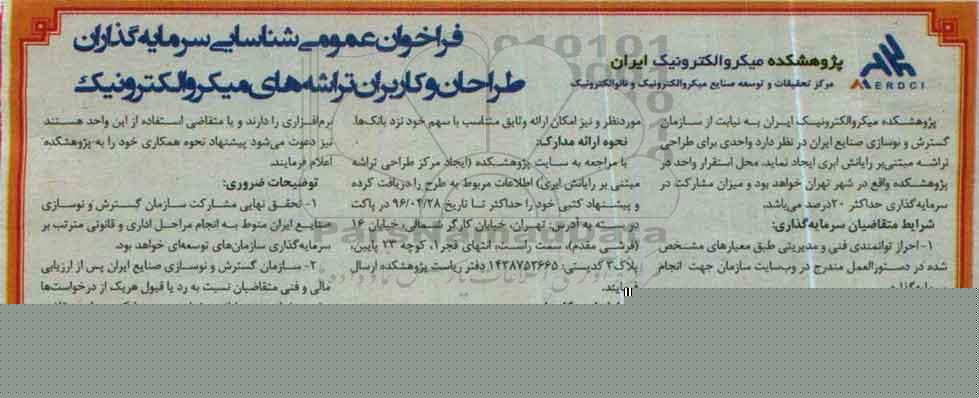 فراخوان عمومی شناسایی سرمایه‌گذاران
طراحان و کاربران تراشه‌های میکروالکترونیک
پژوهشکده میکروالکترونیک ایران
مرکز تحقیقات و توسعه صنایع میکروالکترونیک و نانوالکترونیک
MERDCI
پژوهشکده میکروالکترونیک ایران به نیابت از سازمان
گسترش و نوسازی صنایع ایران در نظر دارد واحدی برای طراحی
تراشه مبتنی‌بر رایانش ابری ایجاد نماید. محل استقرار واحد در
پژوهشکده واقع در شهر تهران خواهد بود و میزان مشارکت در
سرمایه‌گذاری حداکثر ۲۰درصد می‌باشد.
شرایط متقاضیان سرمایه‌گذاری:
۱- احراز توانمندی فنی و مدیریتی طبق معیارهای مشخص
شده در دستورالعمل مندرج در وب‌سایت سازمان جهت انجام
موردنظر و نیز امکان ارائه وثایق متناسب با سهم خود نزد بانک‌ها.
نحوه ارائه مدارک:
با مراجعه به سایت پژوهشکده (ایجاد مرکز طراحی تراشه
مبتنی بر رایانش ابری) اطلاعات مربوط به طرح را دریافت کرده
و پیشنهاد کتبی خود را حداکثر تا تاریخ ۹۶/۰۴/۲۸ در پاکت
در بسته به آدرس: تهران، خیابان کارگر شمالی، خیابان ۱۶
(فرشی مقدم)، سمت راست، انتهای فجر۱، کوچه ۲۳ پایین،
پلاک۳ کدپستی: ۱۴۳۸۷۵۳۶۶۵ دفتر ریاست پژوهشکده ارسال
نمایند.
نرم‌افزاری را دارند و یا متقاضی استفاده از این واحد هستند
نیز دعوت می‌شود پیشنهاد نحوه همکاری خود را به پژوهشکده
اعلام فرمایند.
توضیحات ضروری:
۱- تحقق نهایی مشارکت سازمان گسترش و نوسازی
صنایع ایران منوط به انجام مراحل اداری و قانونی مترتب بر
سرمایه‌گذاری سازمان‌های توسعه‌ای خواهد بود.
۲- سازمان گسترش و نوسازی صنایع ایران پس از ارزیابی
مالی و فنی متقاضیان نسبت به رد یا قبول هریک از درخواست‌ها